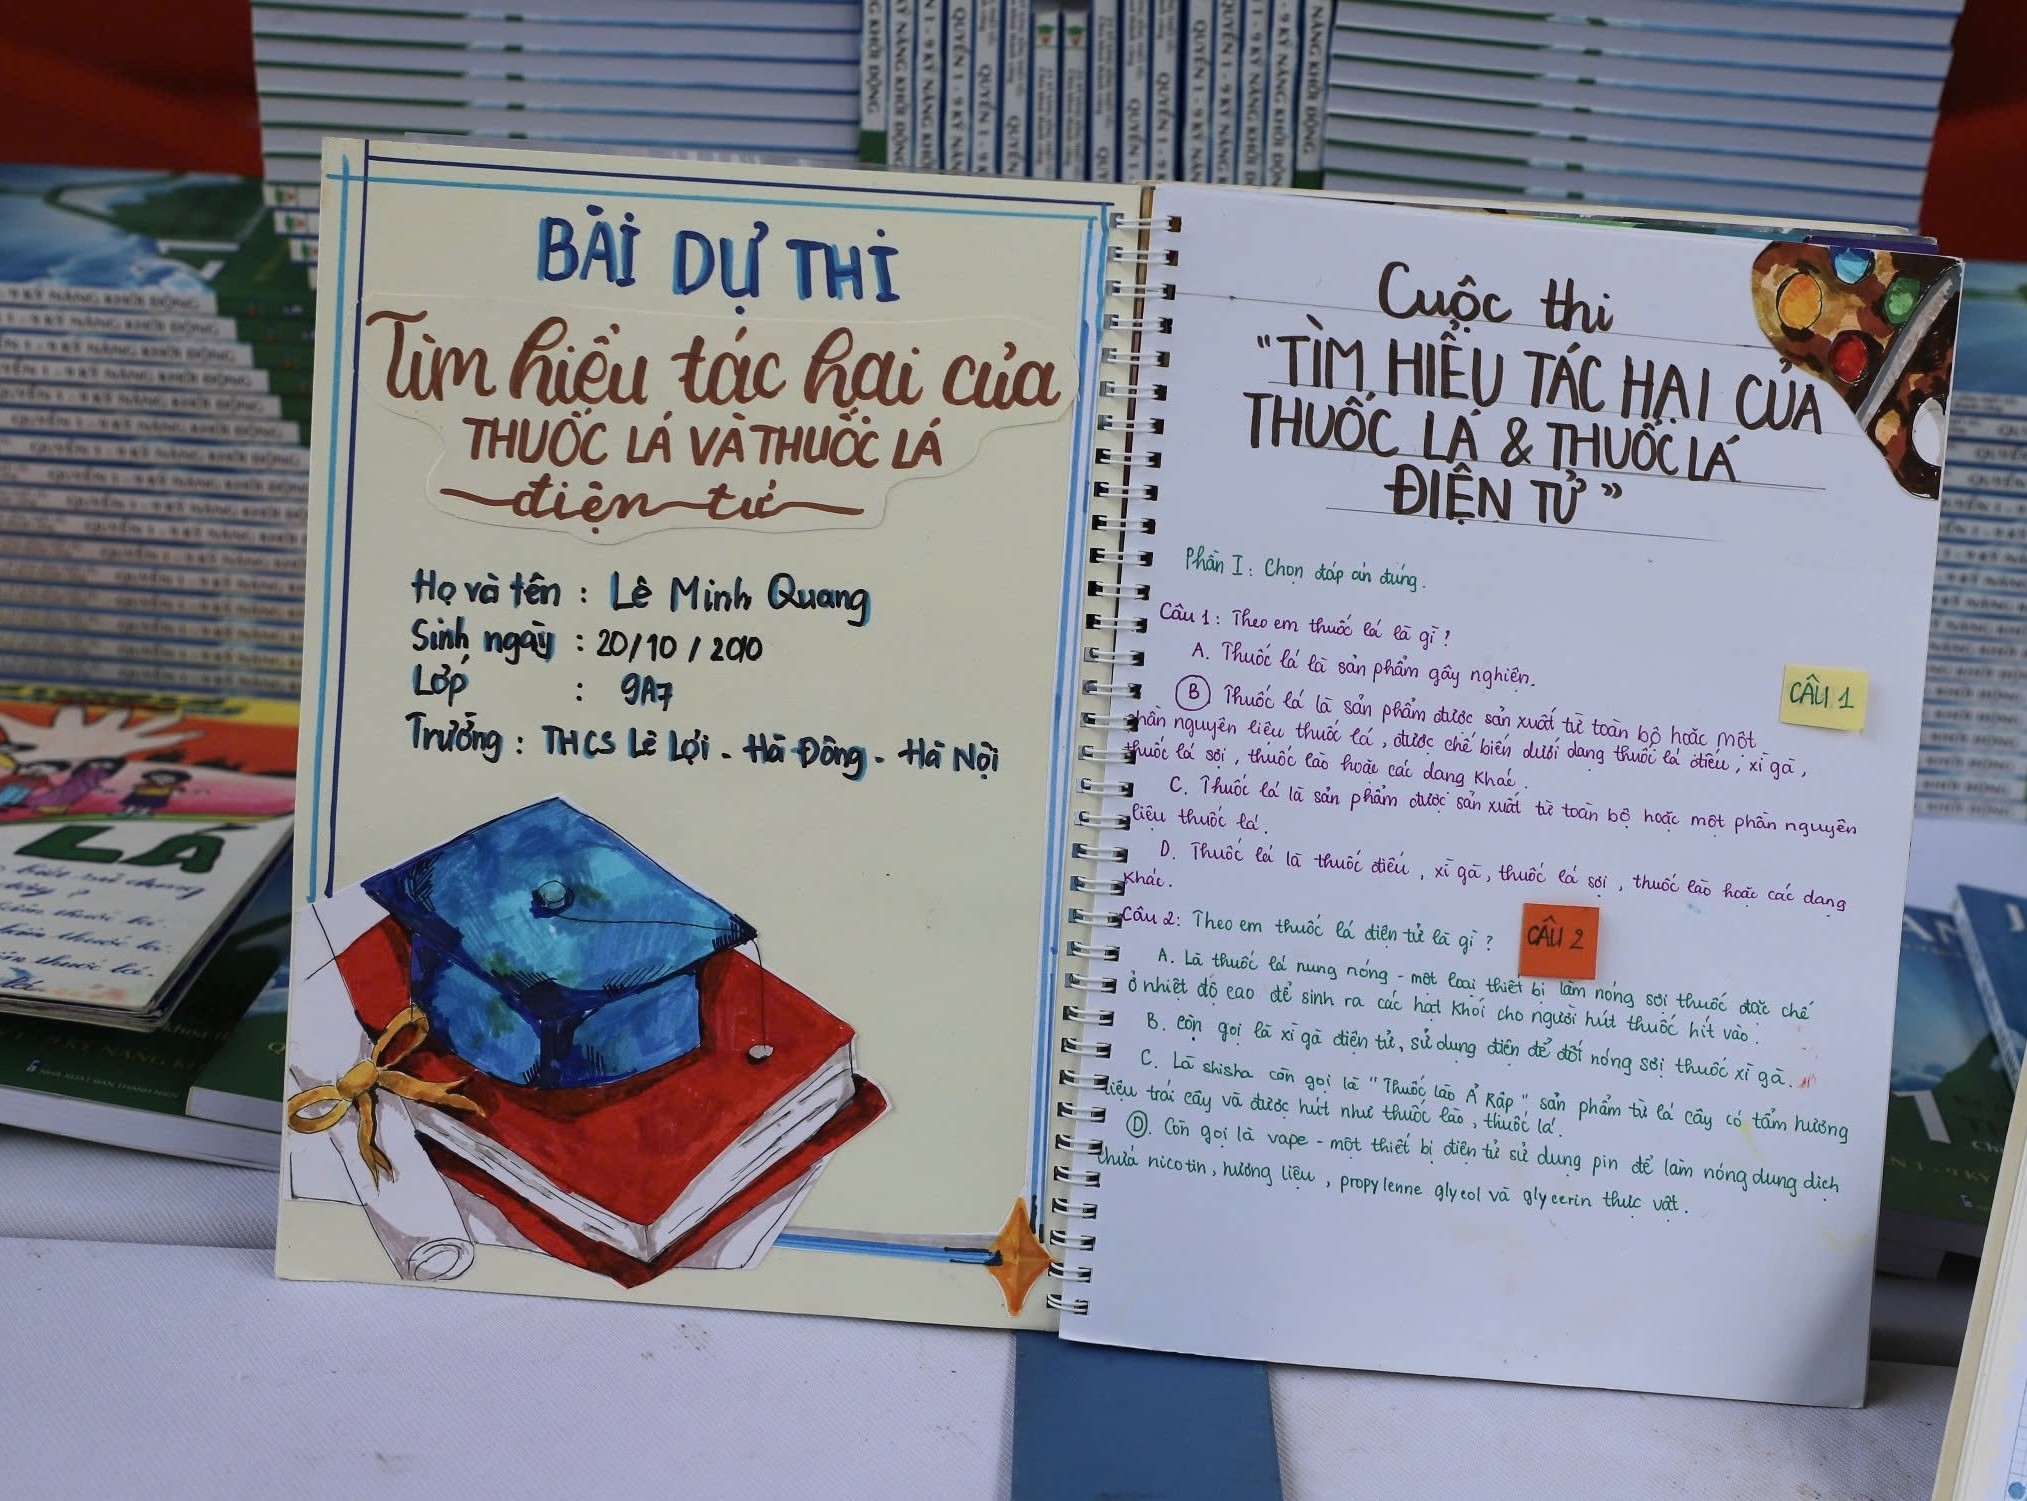 BÀI DỰ THI
Tìm hiểu tác hại của
THUỐC LÁ VÀ THUỐC LÁ
điện tử
Họ và tên : Lê Minh Quang
Sinh ngày : 20/10/2010
Lớp : 9A7
Trường : THCS Lê Lợi - Hà Đông - Hà Nội
Cuộc thi
"TÌM HIỂU TÁC HẠI CỦA
THUỐC LÁ & THUỐC LÁ
ĐIỆN TỬ"
Phần I : Chọn đáp án đúng.
Câu 1 : Theo em thuốc lá là gì ?
A. Thuốc lá là sản phẩm gây nghiện.
CÂU 1
B Thuốc lá là sản phẩm được sản xuất từ toàn bộ hoặc một
phần nguyên liệu thuốc lá , được chế biến dưới dạng thuốc lá điếu , xì gà ,
thuốc lá sợi , thuốc lào hoặc các dạng khác .
C. Thuốc lá là sản phẩm được sản xuất từ toàn bộ hoặc một phần nguyên
liệu thuốc lá .
D. Thuốc lá là thuốc điếu , xì gà , thuốc lá sợi , thuốc lào hoặc các dạng
khác .
Câu 2: Theo em thuốc lá điện tử là gì ?
CÂU 2
A. Là thuốc lá nung nóng - một loại thiết bị làm nóng sợi thuốc được chế
ở nhiệt độ cao để sinh ra các hạt khói cho người hút thuốc hít vào .
B. Còn gọi là xì gà điện tử, sử dụng điện để đốt nóng sợi thuốc xì gà .
C. Là shisha còn gọi là "Thuốc lào Ả Rập" sản phẩm từ lá cây có tẩm hương
liệu trái cây và được hút như thuốc lào , thuốc lá .
D. Còn gọi là vape - một thiết bị điện tử sử dụng pin để làm nóng dung dịch
chứa nicotin , hương liệu , propylenne glycol và glycerin thực vật .
LÁ
QUYỂN 1 - 9 KỸ NĂNG KHỞI ĐỘNG
NHÀ XUẤT BẢN THANH NIÊN